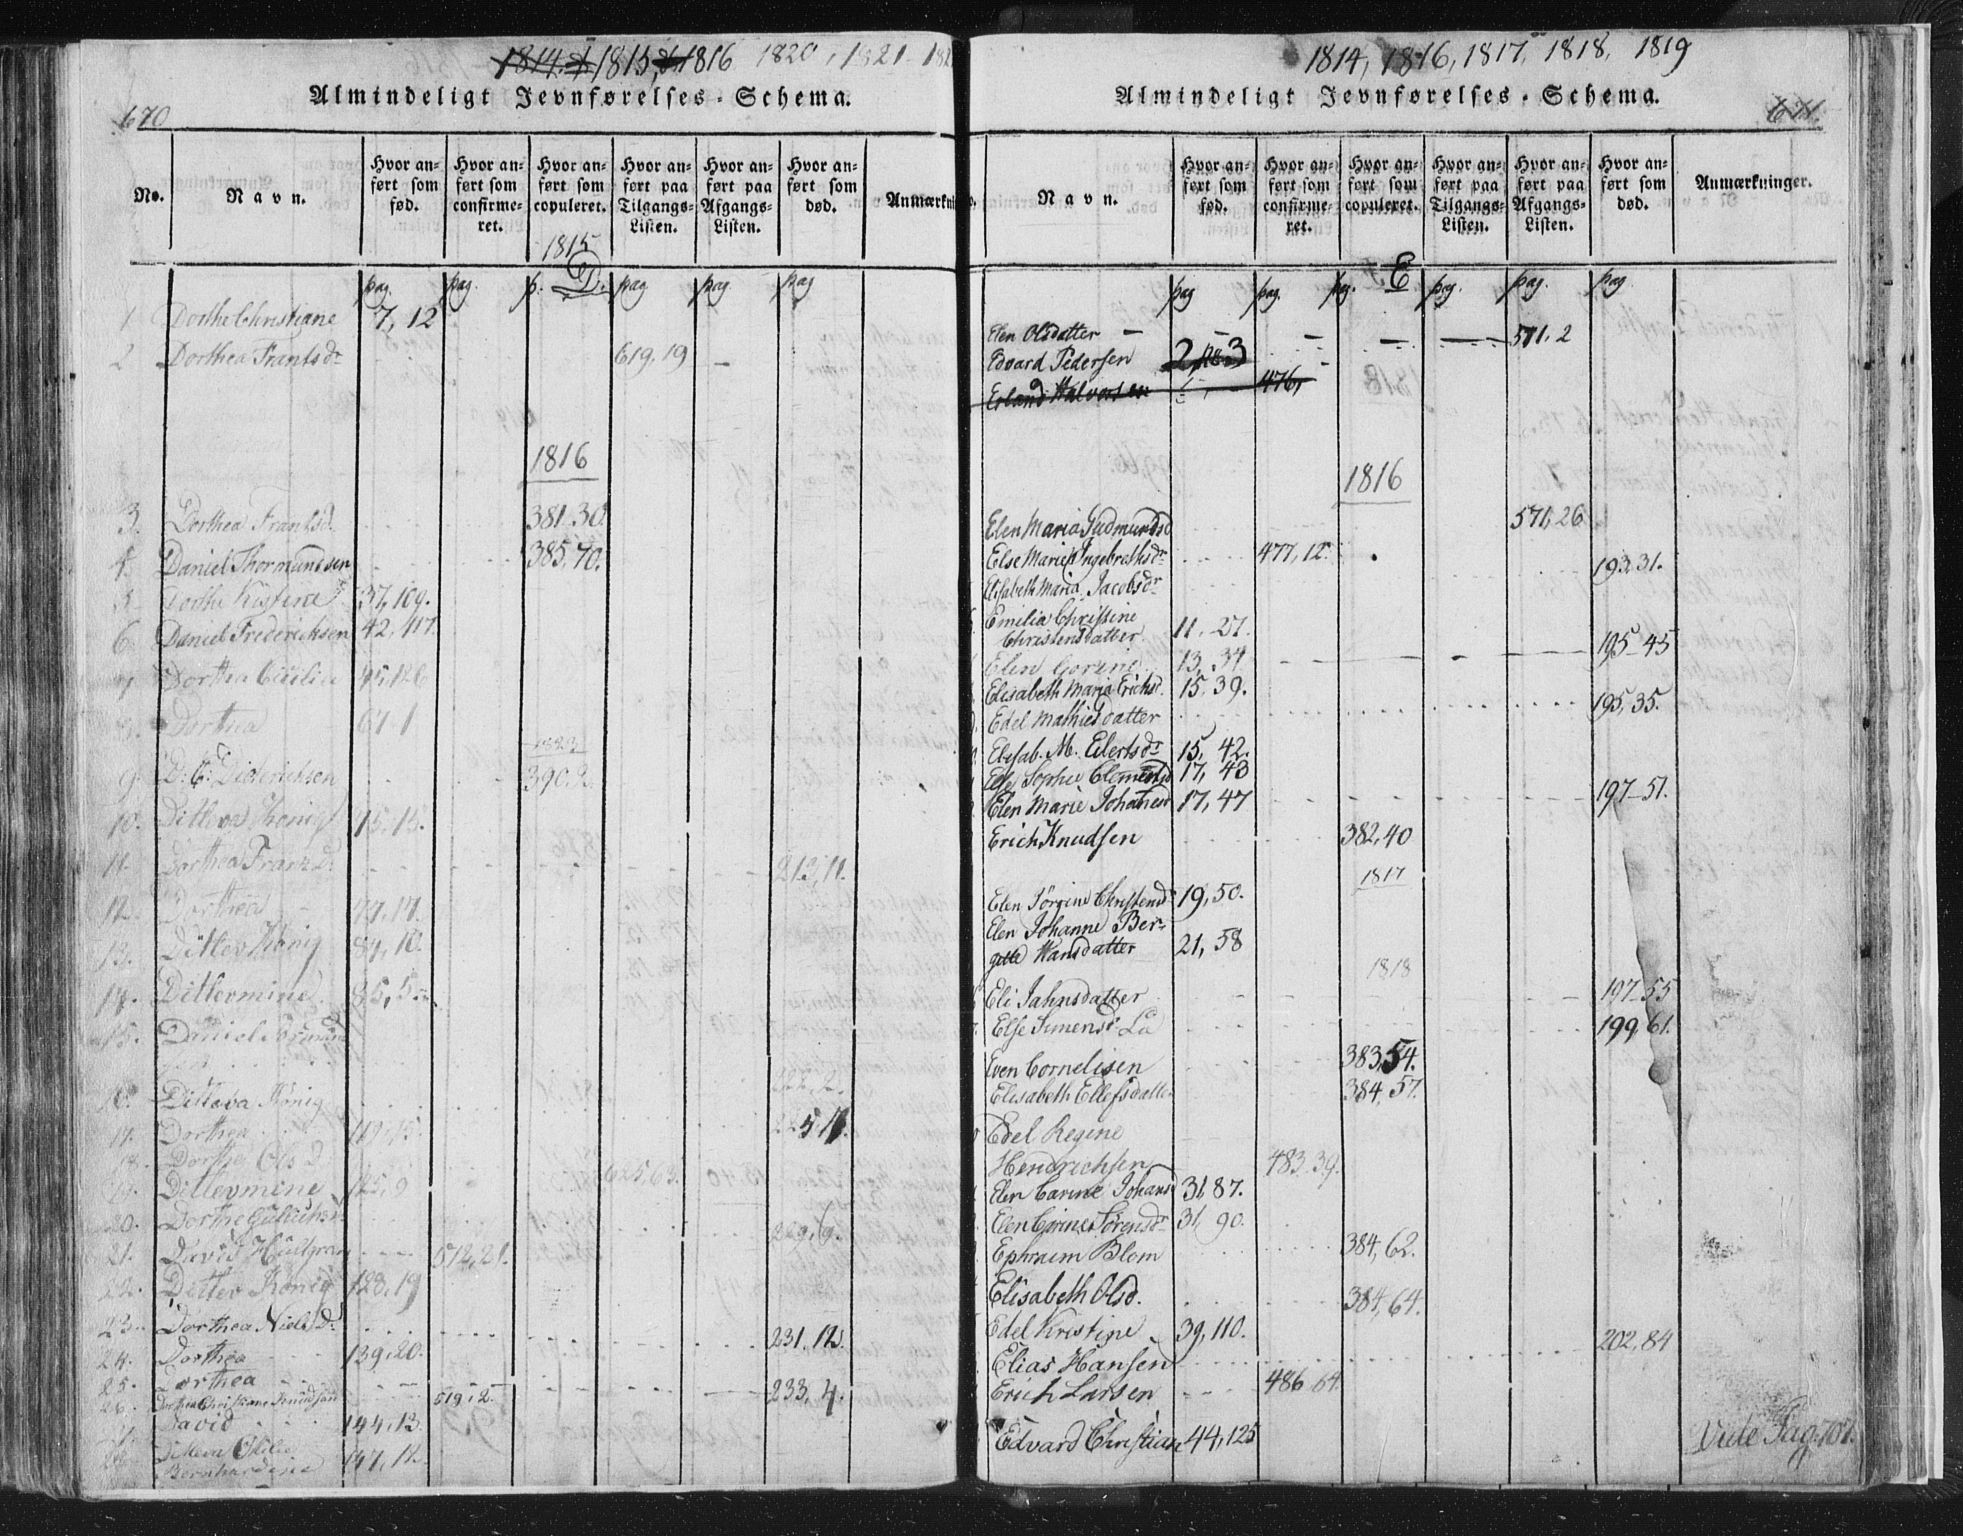 1814 & 1815, & 1816 1820, 1821
Almindeligt Jevnførelses-Schema.
670
No.
Navn.
Hvor anført som født.
Hvor anført som confirmeret.
Hvor anført som copuleret.
Hvor anført paa Tilgangs-Listen.
Hvor anført paa Afgangs-Listen.
Hvor anført som død.
Anmærkni
1815
D.
pag. pag. p. pag pag. pag
1 Dorthe Christiane 7, 12
2 Dorthea Frantsdr 619. 19
1816
3. Dorthea Frantsd. 381. 30
4. Daniel Thormundsen 385, 70.
5 Dorthe Kistine 37, 109.
6 Daniel Fredericksen 42, 117.
7 Dorthea Cicilie 45, 126
8. Dorthea 67. 1
1823
9. D: C: Diderichsen 390. 2.
10. Ditleva König 75. 15.
11. Dorthea Franzd. 213, 11.
12. Dorthea 77, 17.
13. Ditlev König 84, 10.
14. Ditlevmine 85, 5
15. Daniel
16. Ditlava König 222, 2.
17. Dorthea 119, 15. 225, 11.
18. Dorthe Ols d 625, 63.
19. Ditlevmine 125, 9
20. Dorthe 229, 6.
21. David Hultgran 512, 21.
22. Ditlev König 128, 19
23. Dorthea Nielsd. 231. 12.
24. Dorthea 139, 20.
25. Dorthea 233, 4.
26. Dorthea Christiane Knudsdatt 519, 2.
27. David 144, 13.
28. Ditleva Otilie
Bernhardine 147, 11.
1814, 1816, 1817, 1818, 1819
Almindeligt Jevnførelses-Schema.
671.
Navn.
Hvor anført som fød.
Hvor anført som confirmeret.
Hvor anført som copuleret.
Hvor anført paa Tilgangs-Listen.
Hvor anført paa Afgangs-Listen.
Hvor anført som død.
Anmærkninger.
E
pag pag. pag. pag. pag. pag
Elen Olsdatter 571. 2
Edvard Pedersen 2, 3
Erland Halvorsen 476,
1816
Elen Maria Gudmundsd 571, 26
Else Marie Ingebrethsdr 477, 12.
Elisabeth Maria Jacobsdr 193. 31.
Emilia Christine
Christensdatter 11. 27.
Elen Gorine 13, 34 195-45
Elisabeth Maria Erichsd. 15. 39.
Edel Mathiesdatter 195, 35.
Elisab. M. Eilertsdr 15, 42.
Else Sophie Clemensd 17, 43
Elen Marie Johanesd 17, 47 197-51.
Erich Knudsen 382, 40
1817
Elen Jörgine Christensd 19, 50.
Elen Johanne Ber-
gitte Hansdatter 21, 58
1818
Eli Jahnsdatter 197-55
Else Simensd. La 199, 61.
Even Cornelisen 383, 54.
Elisabeth Ellefsdatter 384, 57.
Edel Regine
Hendrichsen 483. 39.
Elen Carine Johansd 31, 87.
Elen Cirine Sörensdr 31, 90.
Ephraim Blom 384, 62.
Elisabeth Olsd. 384, 64.
Edel Kristine 39, 110.
Elias Hansen 202, 84
Erich Larsen 486 64.
Edvard Christian 44, 125
Vide Pag. 701.